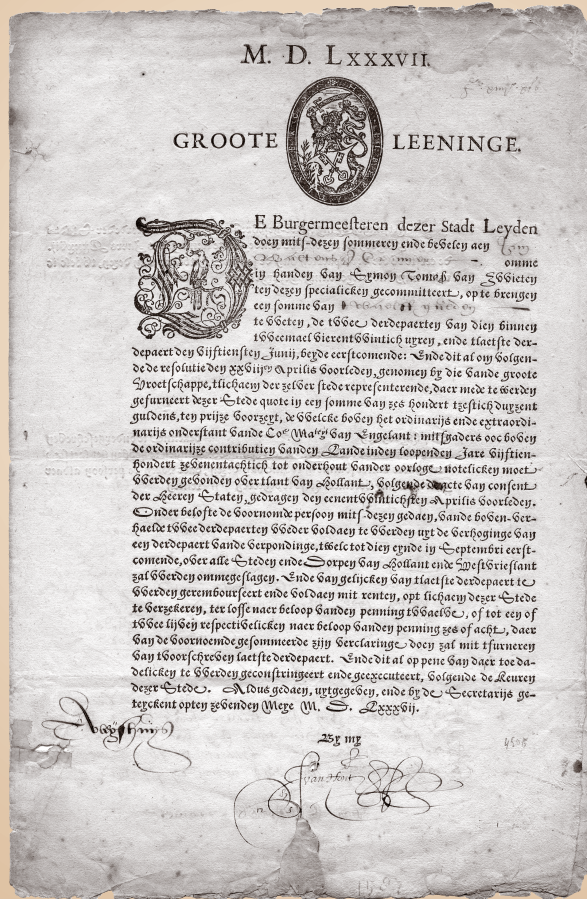 M. D. LXXXVII.
GROOTE LEENINGE.
DE Burgermeesteren dezer Stadt Leyden
doen mits-dezen sommeren ende bevelen aen
omme
in handen van Symon van Zvvieten
ten dezen specialicken gecommitteert, op te brengen
een somme van
te vveten, de tvvee derdepaerten van dien binnen
tvveemael vierentvvintich uyren, ende tlaetste der-
depaert den vijftiensten Junij, beyde eerstcomende: Ende dit al om volgen-
de de resolutie den xxviijen Aprilis voorleden, genomen by die vande groote
Vroetschappe, tlichaem der zelver stede representerende, daer mede te werden
gefurneert dezer Stede quote in een somme van zes hondert tzestich duyzent
guldens, ten prijze voorzeyt, de vvelcke boven het ordinarijs ende extraordi-
narijs onderstant vande Coe Maty van Engelant: mitsgaders ooc boven
de ordinarijze contributien vanden Lande inden loopenden Jare vijftien-
hondert zevenentachtich tot onderhout vander oorloge notelicken moet
vverden gevonden over tlant van Hollant, volgende dacte van consent
der Heeren Staten, gedragen den eenentvvintichsten Aprilis voorleden.
Onder belofte de voornomde persoon mits-dezen gedaen, vande boven-ver-
haelde tvvee derdepaerten vveder voldaen te vverden uyt de verhoginge van
een derdepaert vande verpondinge, twelc tot dien eynde in Septembri eerst-
comende, over alle Steden ende Dorpen van Hollant ende Westvrieslant
zal vverden ommegeslagen. Ende van gelijcken van tlaetste derdepaert te
vverden gerembourseert ende voldaen met renten, opt lichaem dezer Stede
te verzekeren, ter losse naer beloop vanden penning tvvaelve, of tot een of
tvvee lijven respectivelicken naer beloop vanden penning zes of acht, daer
van de voornoemde gesommeerde zijn verclaringe doen zal mit tfurneren
van tvoorschreven laetste derdepaert. Ende dit al op pene van daer toe da-
delicken te vverden geconstringeert ende geexecuteert, volgende de Keuren
dezer Stede. Aldus gedaen, uytgegeven, ende by de Secretarijs ge-
teyckent opten zevenden Meye M. D. LXXXVij.
By my
van Hout